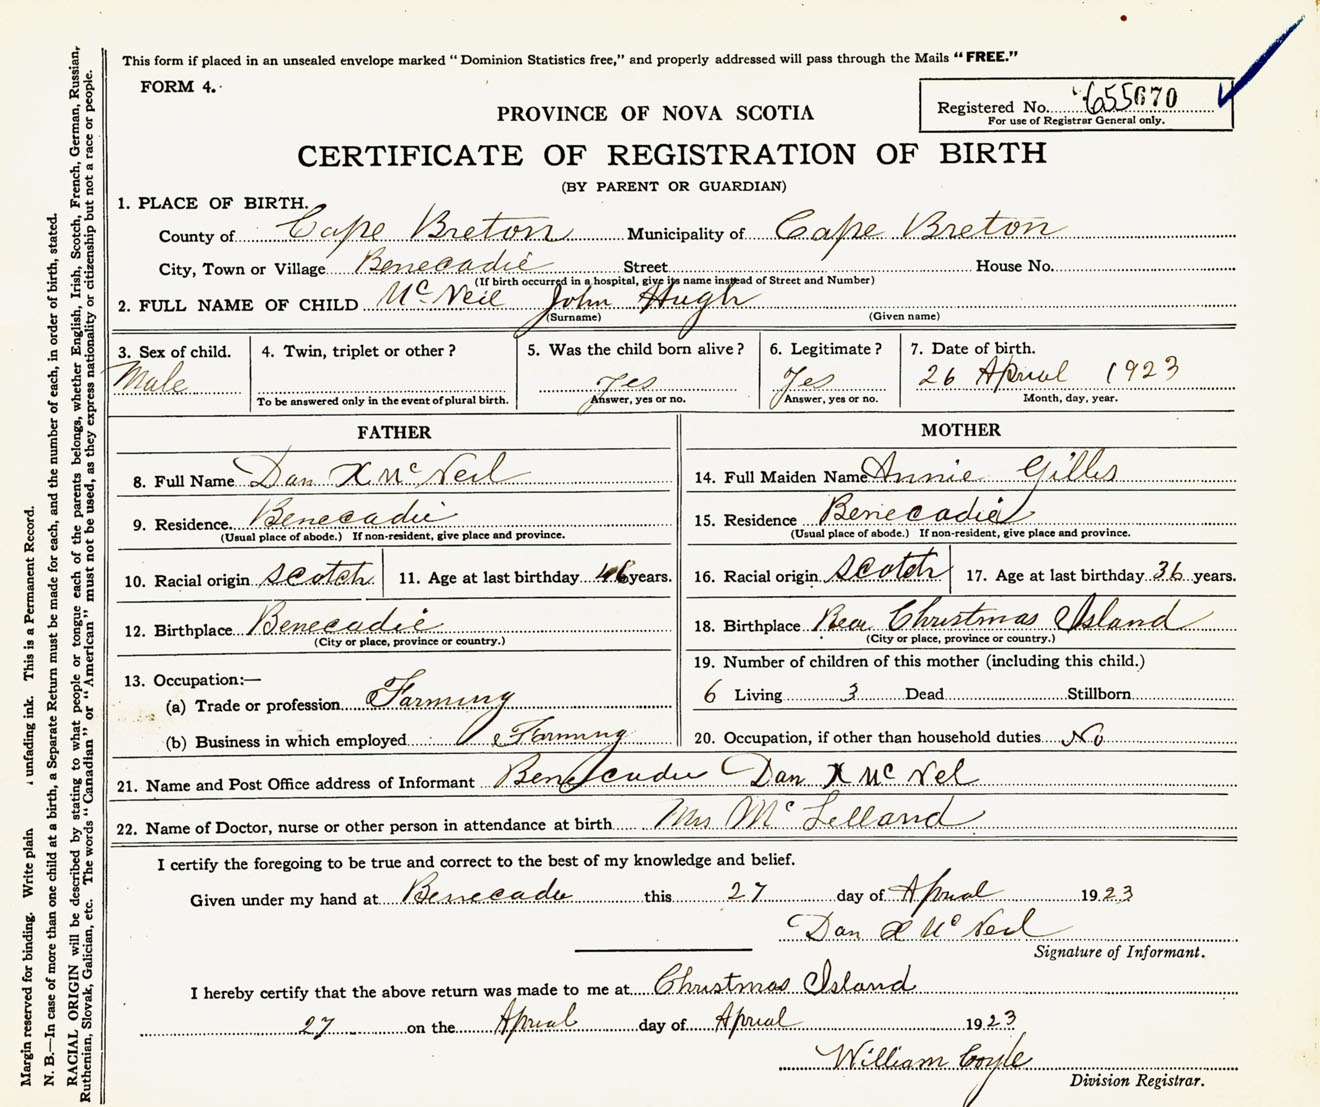 This form if placed in an unsealed envelope marked "Dominion Statistics free," and properly addressed will pass through the Mails "FREE."
FORM 4.
Registered No. 655670
For use of Registrar General only.
PROVINCE OF NOVA SCOTIA
CERTIFICATE OF REGISTRATION OF BIRTH
(BY PARENT OR GUARDIAN)
1. PLACE OF BIRTH.
County of Cape Breton Municipality of Cape Breton
City, Town or Village Benecadie Street House No.
(If birth occurred in a hospital, give its name instead of Street and Number)
2. FULL NAME OF CHILD McNeil John Hugh
(Surname) (Given name)
3. Sex of child. 4. Twin, triplet or other? 5. Was the child born alive? 6. Legitimate? 7. Date of birth.
Male Yes Yes 26 Aprial 1923
To be answered only in the event of plural birth. Answer, yes or no. Answer, yes or no. Month, day, year.
FATHER
8. Full Name Dan X McNeil
9. Residence Benecadie
(Usual place of abode.) If non-resident, give place and province.
10. Racial origin scotch 11. Age at last birthday 46 years.
12. Birthplace Benecadie
(City or place, province or country.)
13. Occupation:—
(a) Trade or profession Farming
(b) Business in which employed Farming
MOTHER
14. Full Maiden Name Annie Gillis
15. Residence Benecadie
(Usual place of abode.) If non-resident, give place and province.
16. Racial origin scotch 17. Age at last birthday 36 years.
18. Birthplace Christmas Island
(City or place, province or country.)
19. Number of children of this mother (including this child.)
6 Living 3 Dead Stillborn
20. Occupation, if other than household duties No
21. Name and Post Office address of Informant Benecadie Dan X McNel
22. Name of Doctor, nurse or other person in attendance at birth Mrs McLelland
I certify the foregoing to be true and correct to the best of my knowledge and belief.
Given under my hand at Benecadie this 27 day of Aprial 1923
Dan X McNeil
Signature of Informant.
I hereby certify that the above return was made to me at Christmas Island
27 on the Aprial day of Aprial 1923
William Coyle
Division Registrar.
Margin reserved for binding. Write plain unfading ink. This is a Permanent Record.
N. B.—In case of more than one child at a birth, a Separate Return must be made for each, and the number of each, in order of birth, stated.
RACIAL ORIGIN will be described by stating to what people or tongue each of the parents belongs, whether English, Irish, Scotch, French, German, Russian,
Ruthenian, Slovak, Galician, etc. The words "Canadian" or "American" must not be used, as they express nationality or citizenship but not a race or people.